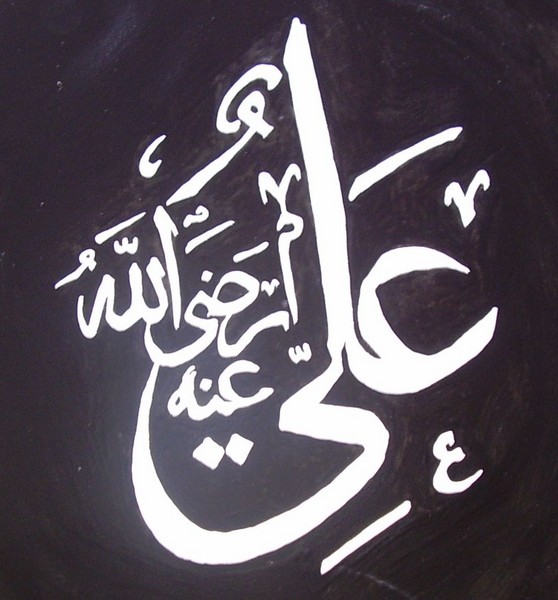 عَلِيٌّ
رَضِيَ اللّٰهُ
عنه